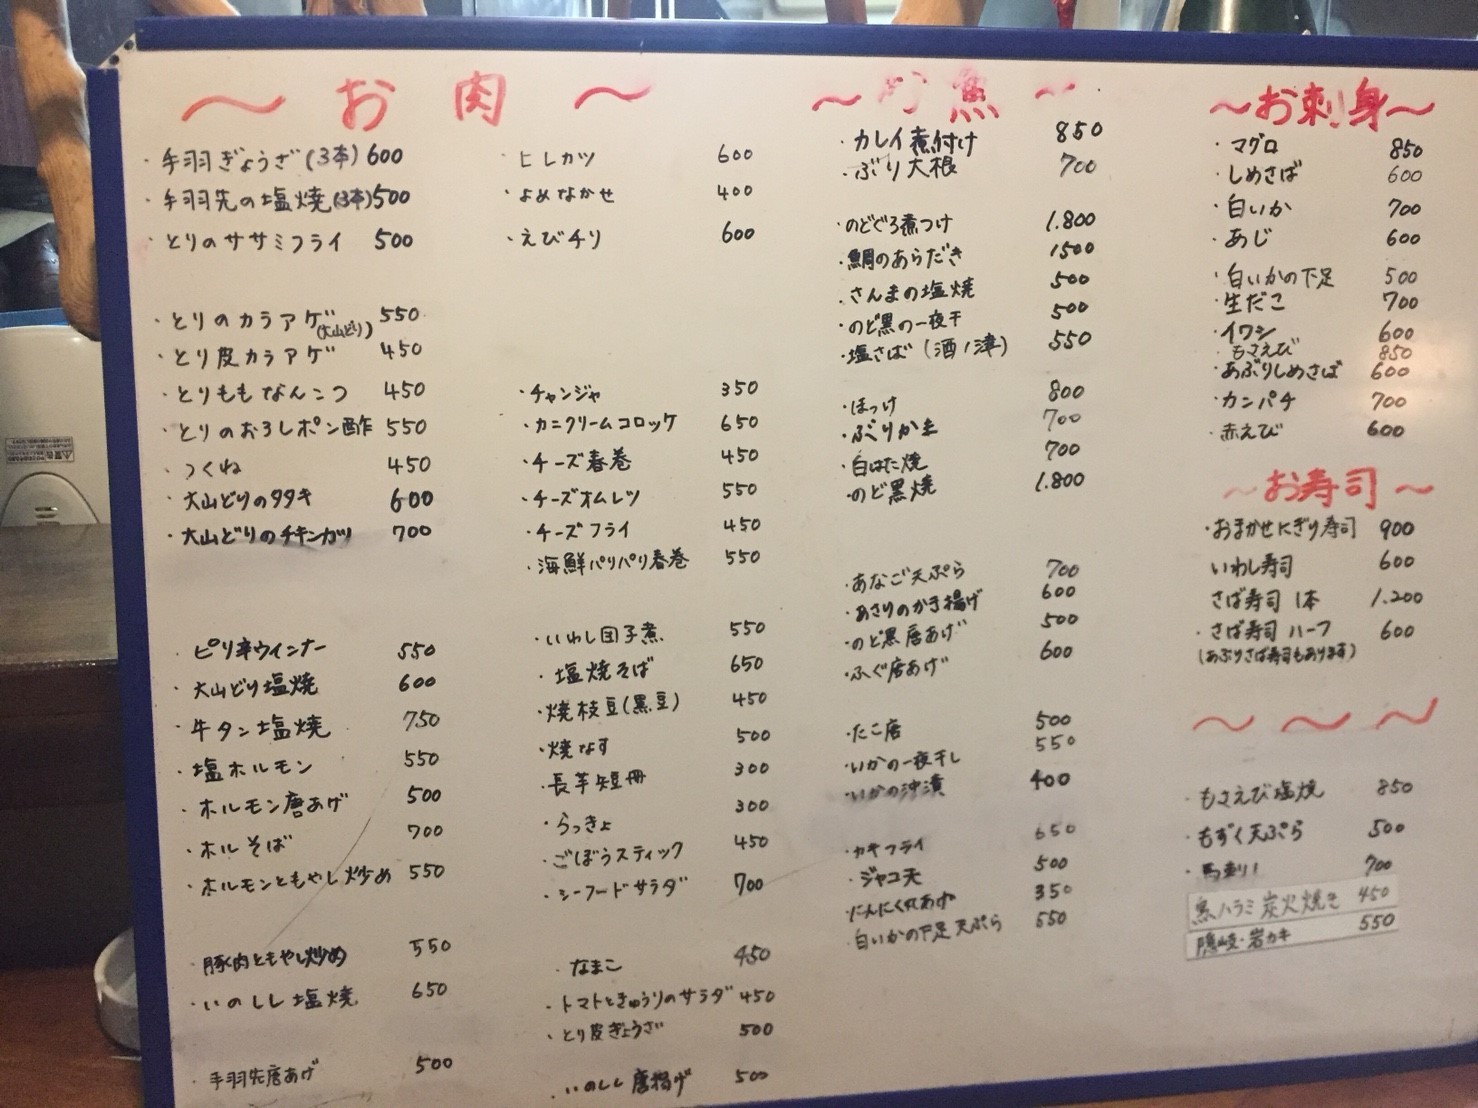 ～お肉～
・手羽ぎょうざ(3本) 600
・手羽先の塩焼(3本) 500
・とりのササミフライ 500
・とりのカラアゲ(大山どり) 550
・とり皮カラアゲ 450
・とりももなんこつ 450
・とりのおろしポン酢 550
・つくね 450
・大山どりのタタキ 600
・大山どりのチキンカツ 700
・ピリ辛ウインナー 550
・大山どり塩焼 600
・牛タン塩焼 750
・塩ホルモン 550
・ホルモン唐あげ 500
・ホルそば 700
・ホルモンともやし炒め 550
・豚肉ともやし炒め 550
・いのしし塩焼 650
・手羽先唐あげ 500
・ヒレカツ 600
・よめなかせ 400
・えびチリ 600
・チャンジャ 350
・カニクリームコロッケ 650
・チーズ春巻 450
・チーズオムレツ 550
・チーズフライ 450
・海鮮パリパリ春巻 550
・いわし団子煮 550
・塩焼そば 650
・焼枝豆(黒豆) 450
・焼なす 500
・長芋短冊 300
・らっきょ 300
・ごぼうスティック 450
・シーフードサラダ 700
・なまこ 450
・トマトときゅうりのサラダ 450
・とり皮ぎょうざ 500
・いのしし唐揚げ 500
～お魚～
・カレイ煮付け 850
・ぶり大根 700
・のどぐろ煮つけ 1.800
・鯛のあらだき 1500
・さんまの塩焼 500
・のど黒の一夜干 500
・塩さば(酒ノ津) 550
・ほっけ 800
・ぶりかま 700
・白はた焼 700
・のど黒焼 1.800
・あなご天ぷら 700
・あさりのかき揚げ 600
・のど黒唐あげ 500
・ふぐ唐あげ 600
・たこ唐 500
・いかの一夜干し 550
・いかの沖漬 400
・カキフライ 650
・ジャコ天 500
・にんにく丸あげ 350
・白いかの下足天ぷら 550
～お刺身～
・マグロ 850
・しめさば 600
・白いか 700
・あじ 600
・白いかの下足 500
・生だこ 700
・イワシ 600
・もさえび 850
・あぶりしめさば 600
・カンパチ 700
・赤えび 600
～お寿司～
・おまかせにぎり寿司 900
いわし寿司 600
さば寿司 1本 1.200
・さば寿司 ハーフ 600
(あぶりさば寿司もあります)
～～～
・もさえび塩焼 850
・もずく天ぷら 500
・馬刺し 700
魚ハラミ炭火焼き 450
隠岐・岩カキ 550